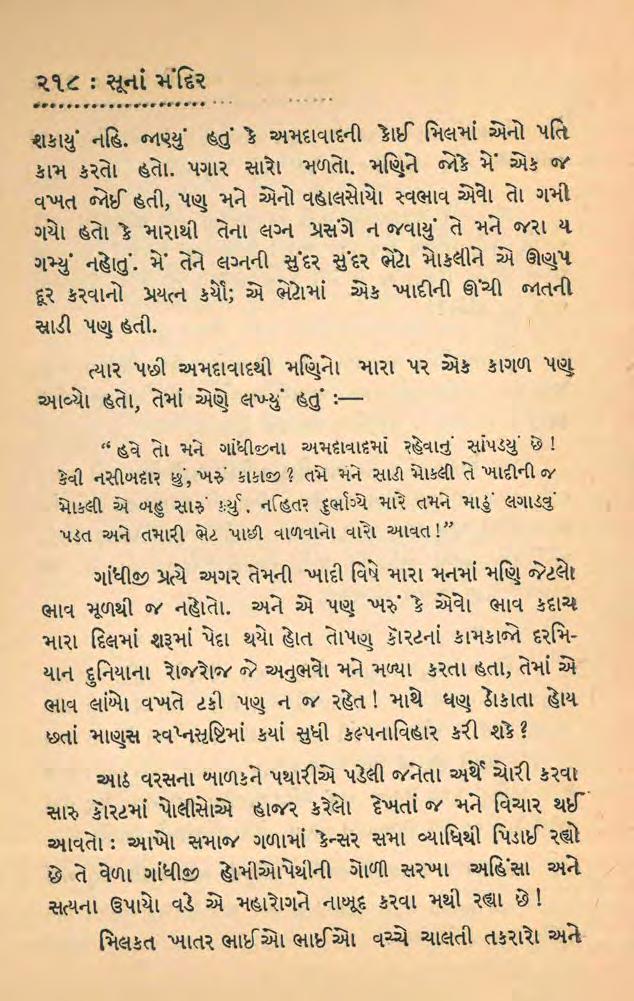 ૨૧૮ : સૂનાં મંદિર
શકાયું નહિ. જાણ્યું હતું કે અમદાવાદની કોઈ મિલમાં એનો પતિ
કામ કરતો હતો. પગાર સારો મળતો. મણિને જોકે મેં એક જ
વખત જોઈ હતી, પણ મને એનો વહાલસોયો સ્વભાવ એવો તો ગમી
ગયો હતો કે મારાથી તેના લગ્ન પ્રસંગે ન જવાયું તે મને જરા ય
ગમ્યું નહોતું. મેં તેને લગ્નની સુંદર સુંદર ભેટો મોકલીને એ ઊણપ
દૂર કરવાનો પ્રયત્ન કર્યો; એ ભેટોમાં એક ખાદીની ઊંચી જાતની
સાડી પણ હતી.
ત્યાર પછી અમદાવાદથી મણિનો મારા પર એક કાગળ પણ
આવ્યો હતો, તેમાં એણે લખ્યું હતું :—
“હવે તો મને ગાંધીજીના અમદાવાદમાં રહેવાનું સાંપડયું છે !
કેવી નસીબદાર છું, ખરું કાકાજી ? તમે મને સાડી મોકલી તે ખાદીની જ
મોકલી એ બહુ સારું કર્યું. નહિતર દુર્ભાગ્યે મારે તમને માઠું લગાડવું
પડત અને તમારી ભેટ પાછી વાળવાનો વારો આવત !”
ગાંધીજી પ્રત્યે અગર તેમની ખાદી વિષે મારા મનમાં મણિ જેટલો
ભાવ મૂળથી જ નહોતો. અને એ પણ ખરું કે એવો ભાવ કદાચ
મારા દિલમાં શરૂમાં પેદા થયો હોત તોપણ કૉરટનાં કામકાજો દરમિ-
યાન દુનિયાના રોજરોજ જે અનુભવો મને મળ્યા કરતા હતા, તેમાં એ
ભાવ લાંબો વખતે ટકી પણ ન જ રહેત ! માથે ઘણ ઠોકાતા હોય
છતાં માણસ સ્વપ્નસૃષ્ટિમાં કયાં સુધી કલ્પનાવિહાર કરી શકે ?
આઠ વરસના બાળકને પથારીએ પડેલી જનેતા અર્થે ચોરી કરવા
સારુ કૉરટમાં પોલીસોએ હાજર કરેલો દેખતાં જ મને વિચાર થઈ
આવતો : આખો સમાજ ગળામાં કેન્સર સમા વ્યાધિથી પિડાઈ રહ્યો
છે તે વેળા ગાંધીજી હોમીઓપેથીની ગોળી સરખા અહિંસા અને
સત્યના ઉપાયો વડે એ મહારોગને નાબૂદ કરવા મથી રહ્યા છે !
મિલકત ખાતર ભાઈઓ ભાઈઓ વચ્ચે ચાલતી તકરારો અને